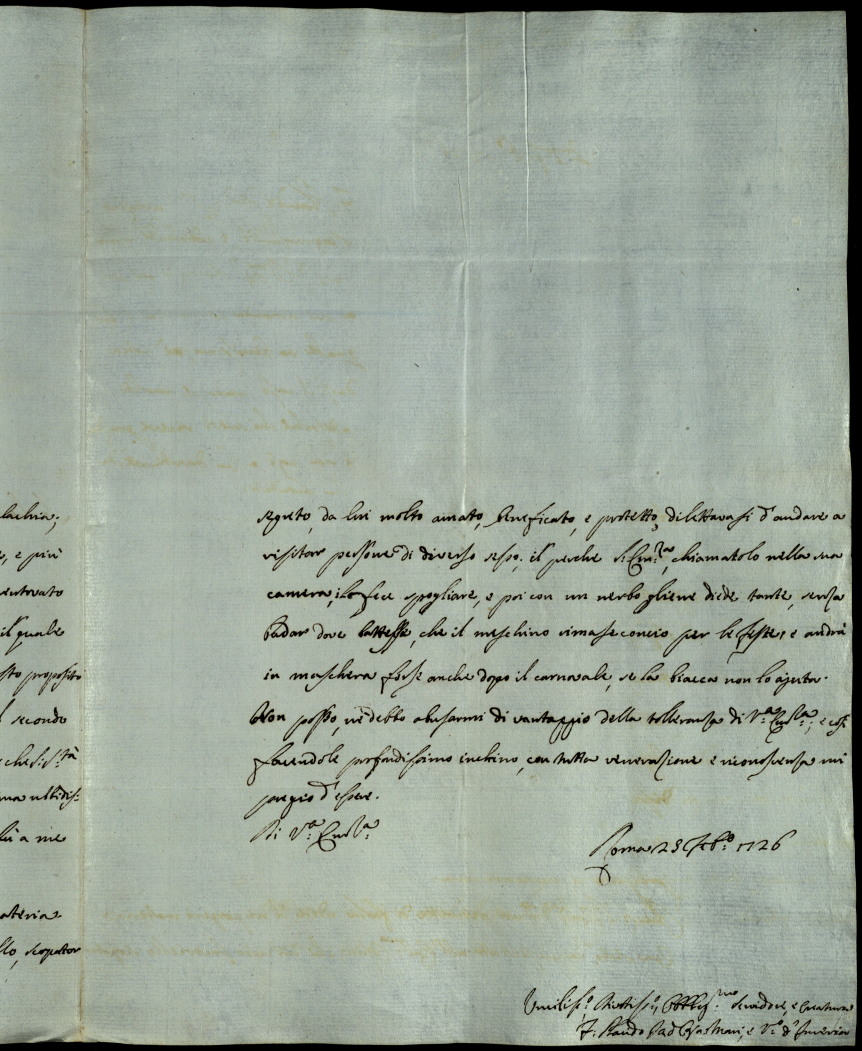 lachia;
e, e più
entovato
il quale
sto proposito
l secondo
che S. S.tà
ma ubbidis-
più a me
ateria
llo, scopator
segreto, da lui molto amato, beneficato, e protetto, dilettavasi d'andare a
visitar persone di diverso sesso; il perche S. Em.za, chiamatolo nella sua
camera, lo fece spogliare, e poi con un nerbo gliene diede tante, senza
badar dove battesse, che il meschino rimase concio per le feste; e andrà
in maschera forse anche dopo il carnovale, se la biacca non lo ajuta.
Non posso, nè debbo abusarmi di vantaggio della tolleranza di V.a Em.za; e così
facendole profondissimo inchino, con tutta venerazione e riconoscenza mi
pregio d'essere.
Di V.a Em.za
Roma 23 Feb.o 1726
Umiliss.o Divotiss.o, Obbligat.mo Servidore, e Creatura
F.